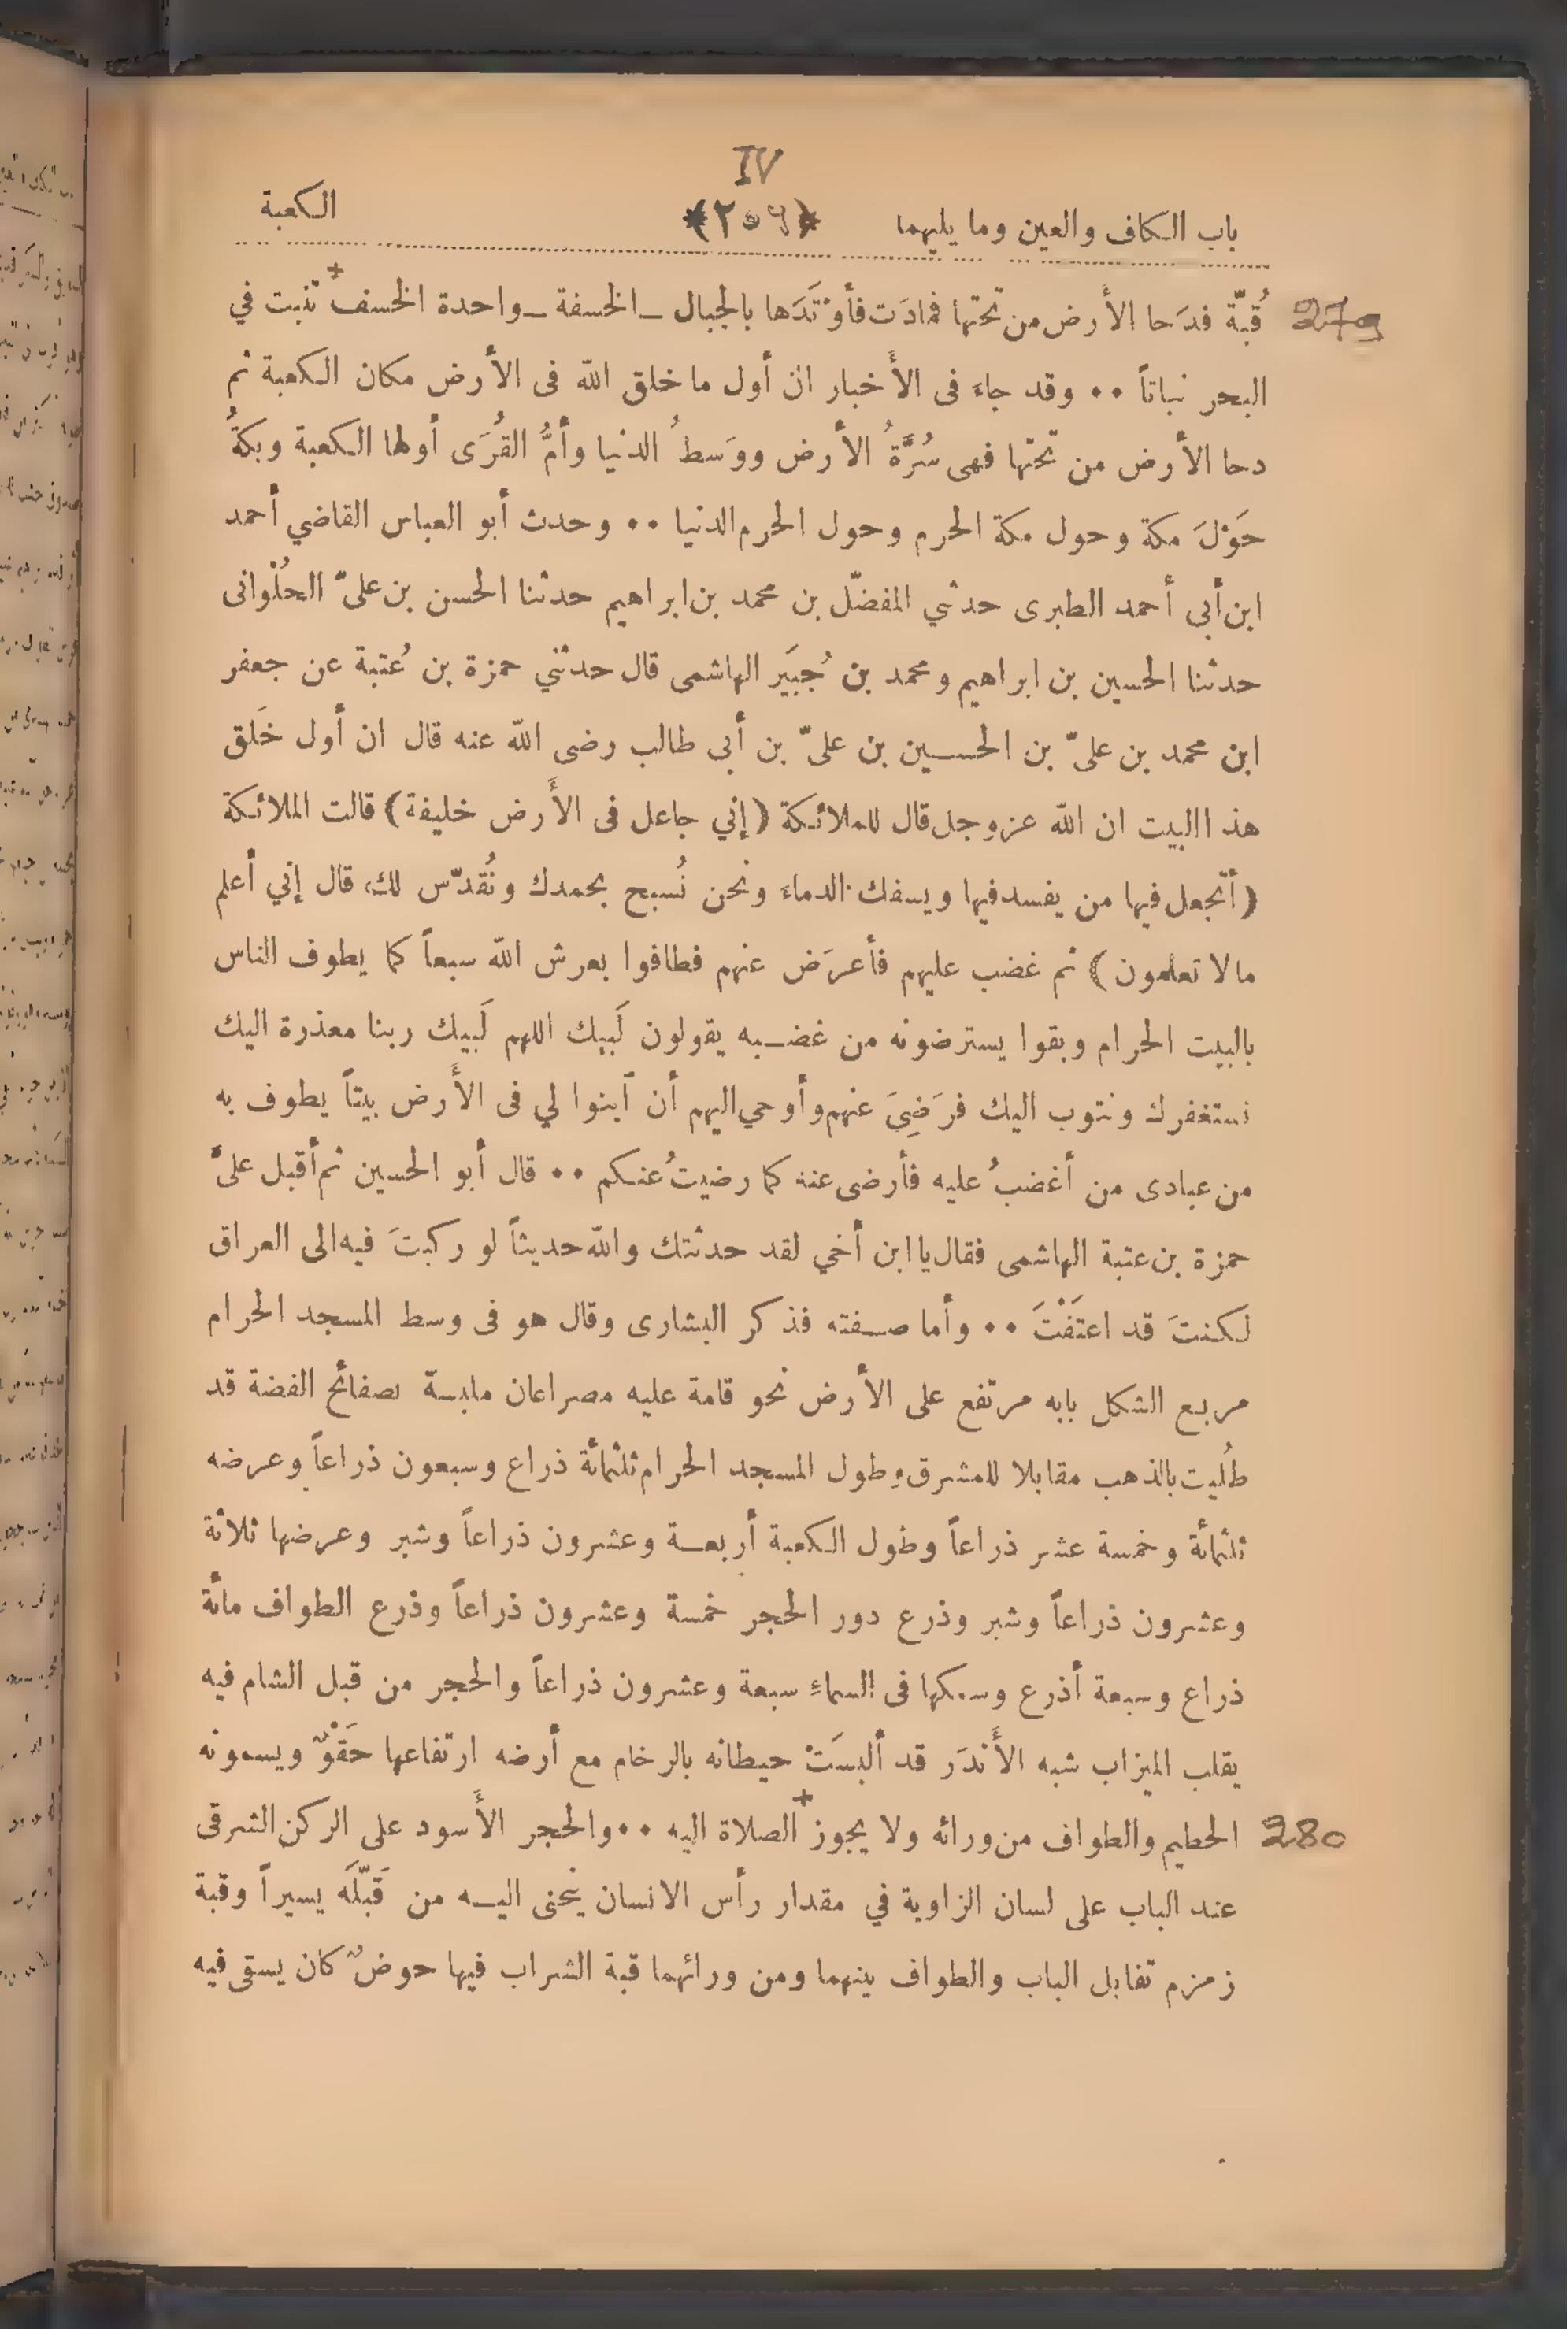 IV
باب الكاف والعين وما يليهما ﴿٢٥٩﴾ الكعبة
279 قُبّة فدَحا الأَرض من تحتها فمادَت فأوْتَدَها بالجبال _ الخسفة _ واحدة الخسف + تنبت في
البحر نباتاً ٠٠ وقد جاءَ فى الأَخبار ان أول ما خلق الله فى الأرض مكان الكعبة ثم
دحا الأرض من تحتها فهى سُرَّةُ الأرض ووَسطُ الدنيا وأمُّ القُرَى أولها الكعبة وبكةُ
حَوْلَ مكة وحول مكة الحرم وحول الحرم الدنيا ٠٠ وحدث أبو العباس القاضي أحمد
ابن أبى أحمد الطبرى حدثني المفضّل بن محمد بن ابراهيم حدثنا الحسن بن علىّ الحُلْوانى
حدثنا الحسين بن ابراهيم ومحمد بن جُبَير الهاشمى قال حدثني حمزة بن عُتبة عن جعفر
ابن محمد بن علىّ بن الحسين بن علىّ بن أبى طالب رضى الله عنه قال ان أول خَلق
هذ االبيت ان الله عزوجل قال للملائكة ( إني جاعل فى الأَرض خليفة ) قالت الملائكة
( أتجعل فيها من يفسد فيها ويسفك الدماءَ ونحن نُسبح بحمدك ونُقدّس لك، قال إني أعلم
مالا تعلمون ) ثم غضب عليهم فأعرَض عنهم فطافوا بعرش الله سبعاً كما يطوف الناس
بالبيت الحرام وبقوا يسترضونه من غضبه يقولون لَبيك اللهم لَبيك ربنا معذرة اليك
نستغفرك ونتوب اليك فرَضِيَ عنهم وأوحي اليهم أن آبنوا لي فى الأَرض بيتاً يطوف به
من عبادى من أغضبُ عليه فأرضى عنه كما رضيتُ عنكم ٠٠ قال أبو الحسين ثم أقبل علىَّ
حمزة بن عتبة الهاشمى فقال يا ابن أخي لقد حدثتك والله حديثاً لو ركبتَ فيه الى العراق
لكنتَ قد اعتَفْتَ ٠٠ وأما صفته فذكر البشارى وقال هو فى وسط المسجد الحرام
مربع الشكل بابه مرتفع على الأرض نحو قامة عليه مصراعان ملبسة بصفائح الفضة قد
طُليت بالذهب مقابلا للمشرق وطول المسجد الحرام ثلثمائة ذراع وسبعون ذراعاً وعرضه
ثلثمائة وخمسة عشر ذراعاً وطول الكعبة أربعة وعشرون ذراعاً وشبر وعرضها ثلاثة
وعشرون ذراعاً وشبر وذرع دور الحجر خمسة وعشرون ذراعاً وذرع الطواف مائة
ذراع وسبعة أذرع وسمكها فى السماءِ سبعة وعشرون ذراعاً والحجر من قبل الشام فيه
يقلب الميزاب شبه الأَندَر قد ألبسَتْ حيطانه بالرخام مع أرضه ارتفاعها حَقْوٌ ويسمونه
280 الحطيم والطواف من ورائه ولا يجوز + الصلاة اليه ٠٠ والحجر الأَسود على الركن الشرقى
عند الباب على لسان الزاوية في مقدار رأس الانسان ينحنى اليه من قَبّلَه يسيراً وقبة
زمزم تقابل الباب والطواف بينهما ومن ورائهما قبة الشراب فيها حوضٌ كان يسقى فيه